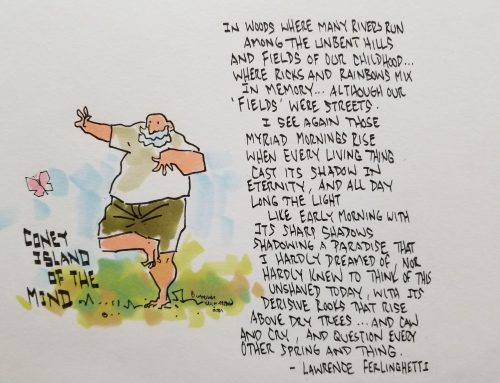 IN WOODS WHERE MANY RIVERS RUN
AMONG THE UNBENT HILLS
AND FIELDS OF OUR CHILDHOOD...
WHERE RICKS AND RAINBOWS MIX
IN MEMORY... ALTHOUGH OUR
'FIELDS' WERE STREETS.
I SEE AGAIN THOSE
MYRIAD MORNINGS RISE
WHEN EVERY LIVING THING
CAST ITS SHADOW IN
ETERNITY, AND ALL DAY
LONG THE LIGHT
LIKE EARLY MORNING WITH
ITS SHARP SHADOWS
SHADOWING A PARADISE THAT
I HARDLY DREAMED OF, NOR
HARDLY KNEW TO THINK OF THIS
UNSHAVED TODAY, WITH ITS
DERISIVE ROOKS THAT RISE
ABOVE DRY TREES... AND CAW
AND CRY, AND QUESTION EVERY
OTHER SPRING AND THING.
- LAWRENCE FERLINGHETTI
CONEY
ISLAND
OF THE
MIND